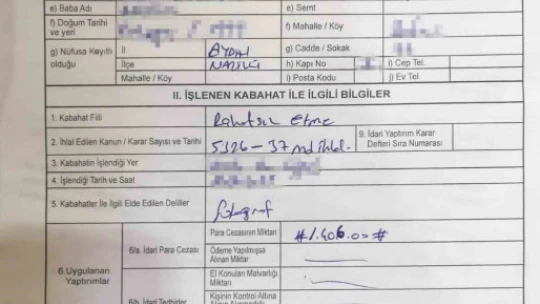 e) Baba Adı
e) Semt
f) Doğum Tarihi ve yeri
f) Mahalle / Köy
g) Nüfusa Kayıtlı olduğu
İl
AYDIN
g) Cadde / Sokak
İlçe
NAZİLLİ
h) Kapı No
i) Cep Tel.
Mahalle / Köy
i) Posta Kodu
j) Ev Tel
II. İŞLENEN KABAHAT İLE İLGİLİ BİLGİLER
1. Kabahat Fiili
Rahatsız etme
2. İhlal Edilen Kanun / Karar Sayısı ve Tarihi
5326-37 md ihlal.
9. İdari Yaptırım Karar Defteri Sıra Numarası
3. Kabahatin İşlendiği Yer
4. İşlendiği Tarih ve Saat
5. Kabahatler İle İlgili Elde Edilen Deliller
fotoğraf
6.Uygulanan Yaptırımlar
6/a. İdari Para Cezası
Para Cezasının Miktarı
#1.406.00#
Ödeme Yapılmışsa Alınan Miktar
6/b. İdari Tedbirler
El Konulan Malvarlığı Miktarı
Kişinin Kontrol Altına